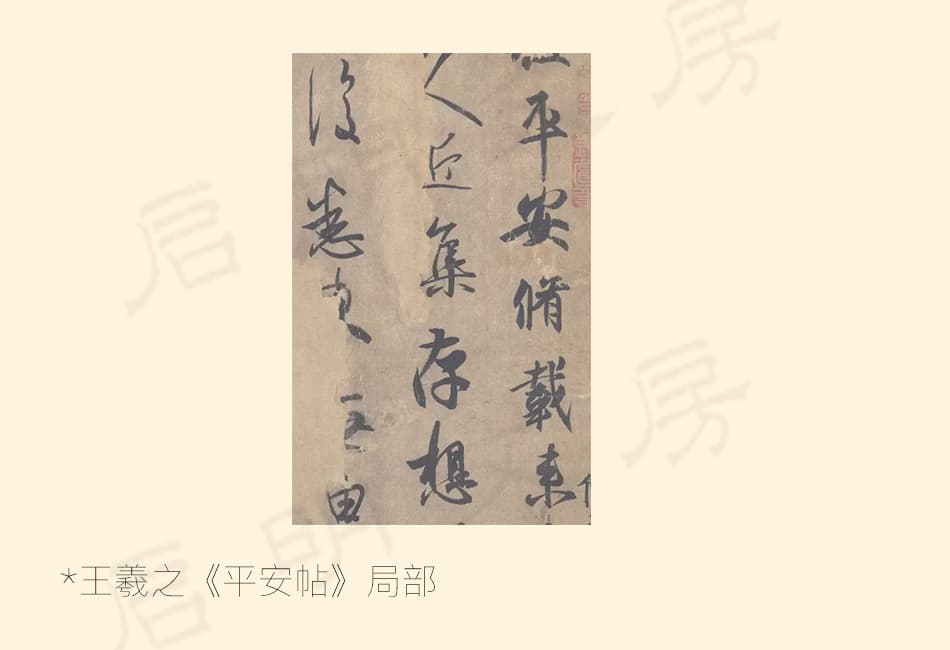 平安脩載来
人近集存想
復悉来无由
*王羲之《平安帖》局部